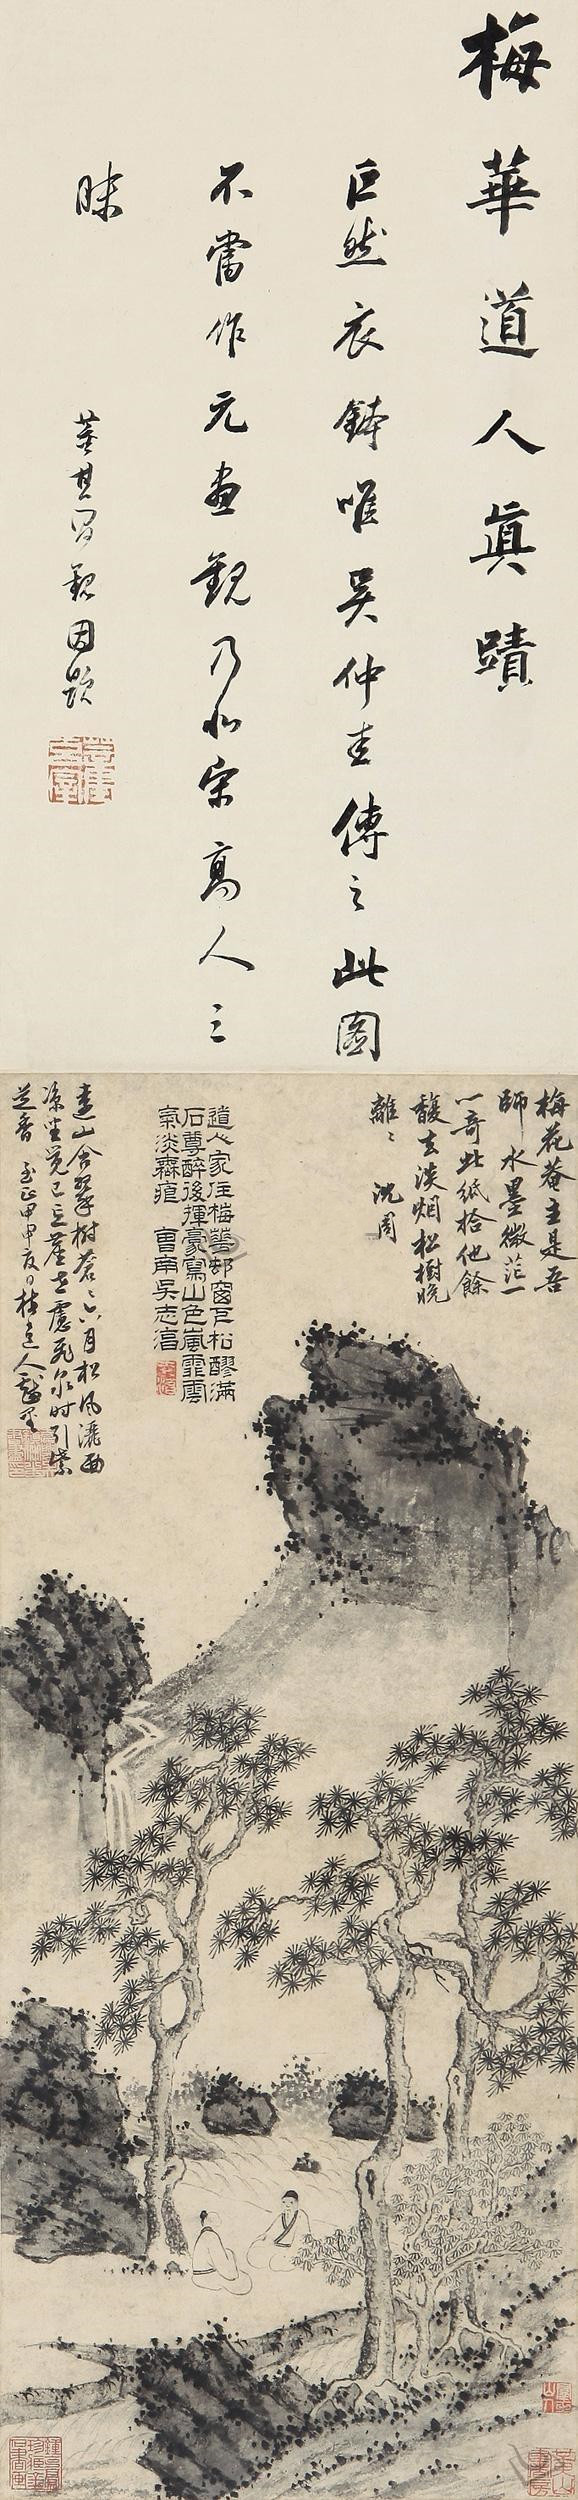 梅華道人真蹟
巨然衣鉢唯吳仲圭傳之此圖
不當作元畫觀乃北宋高人三
昧
董其昌觀因題
梅花菴主是吾
師水墨微茫一
一奇此紙拾他餘
馥去淡烟松樹晚
離〻沈周
道人家住梅花邨窗下松醪滿
石尊醉後揮豪寫山色嵐霏雲
氣淡無痕 曹南吳志淳
遠山含翠樹蒼〻六月松風灑面
涼坐覺已忘塵世慮飛泉時引紫
芝香 至正甲申夏日梅道人戲墨